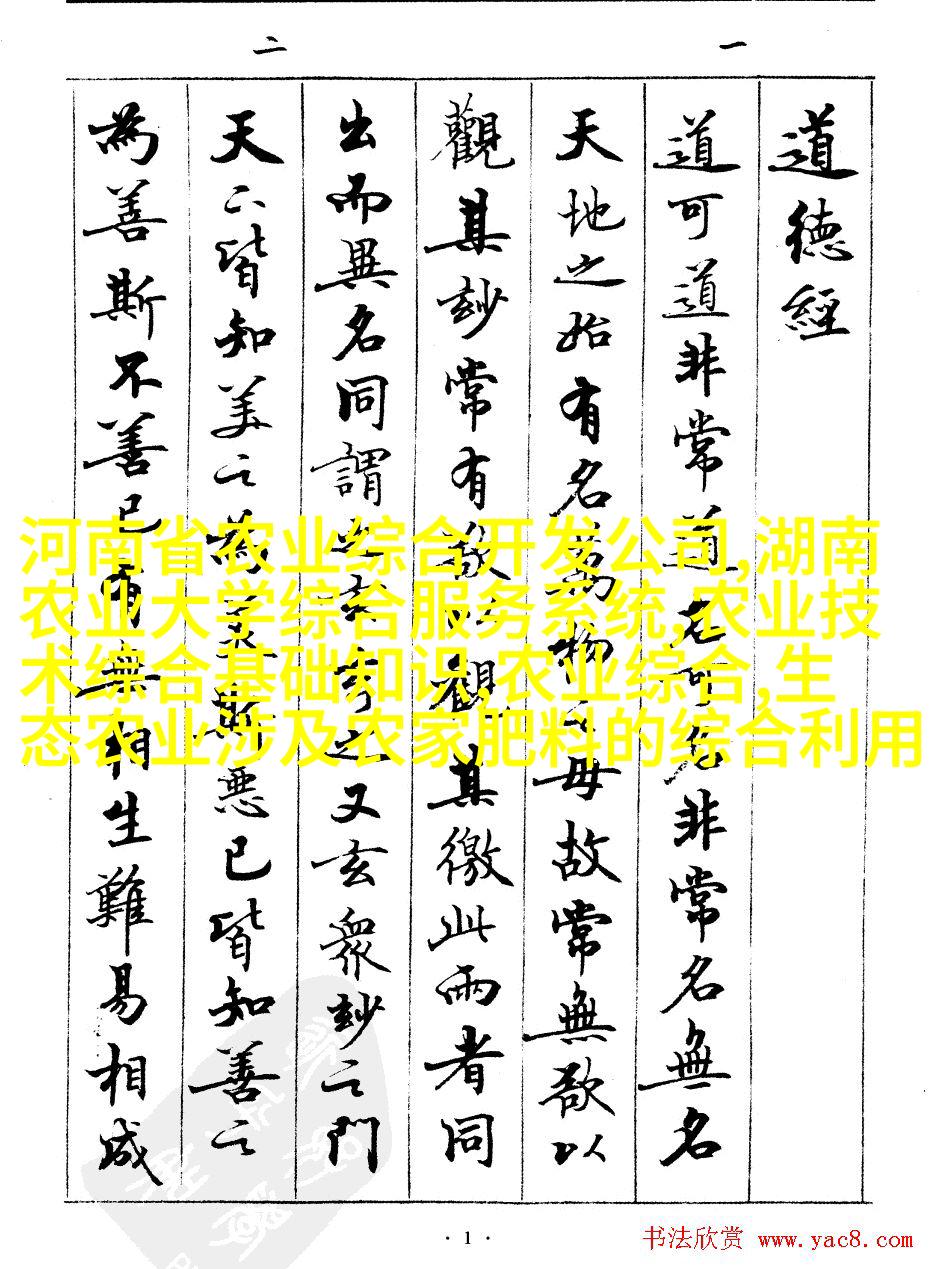 一
二
道德經
道可道非常道名可名非常名無名
天地之始有名萬物之母故常無欲以
觀其玅常有欲以觀其徼此兩者同
出而異名同謂之玄玄之又玄眾玅之門
天下皆知美之為美斯惡已皆知善之
為善斯不善已有無相生難易相成
河南省农业综合开发公司,湖南
农业大学综合服务系统,农业技
术综合基础知识,农业综合,生
态农业涉及农家肥料的综合利用
· 1 ·
书法欣赏 www.yac8.com